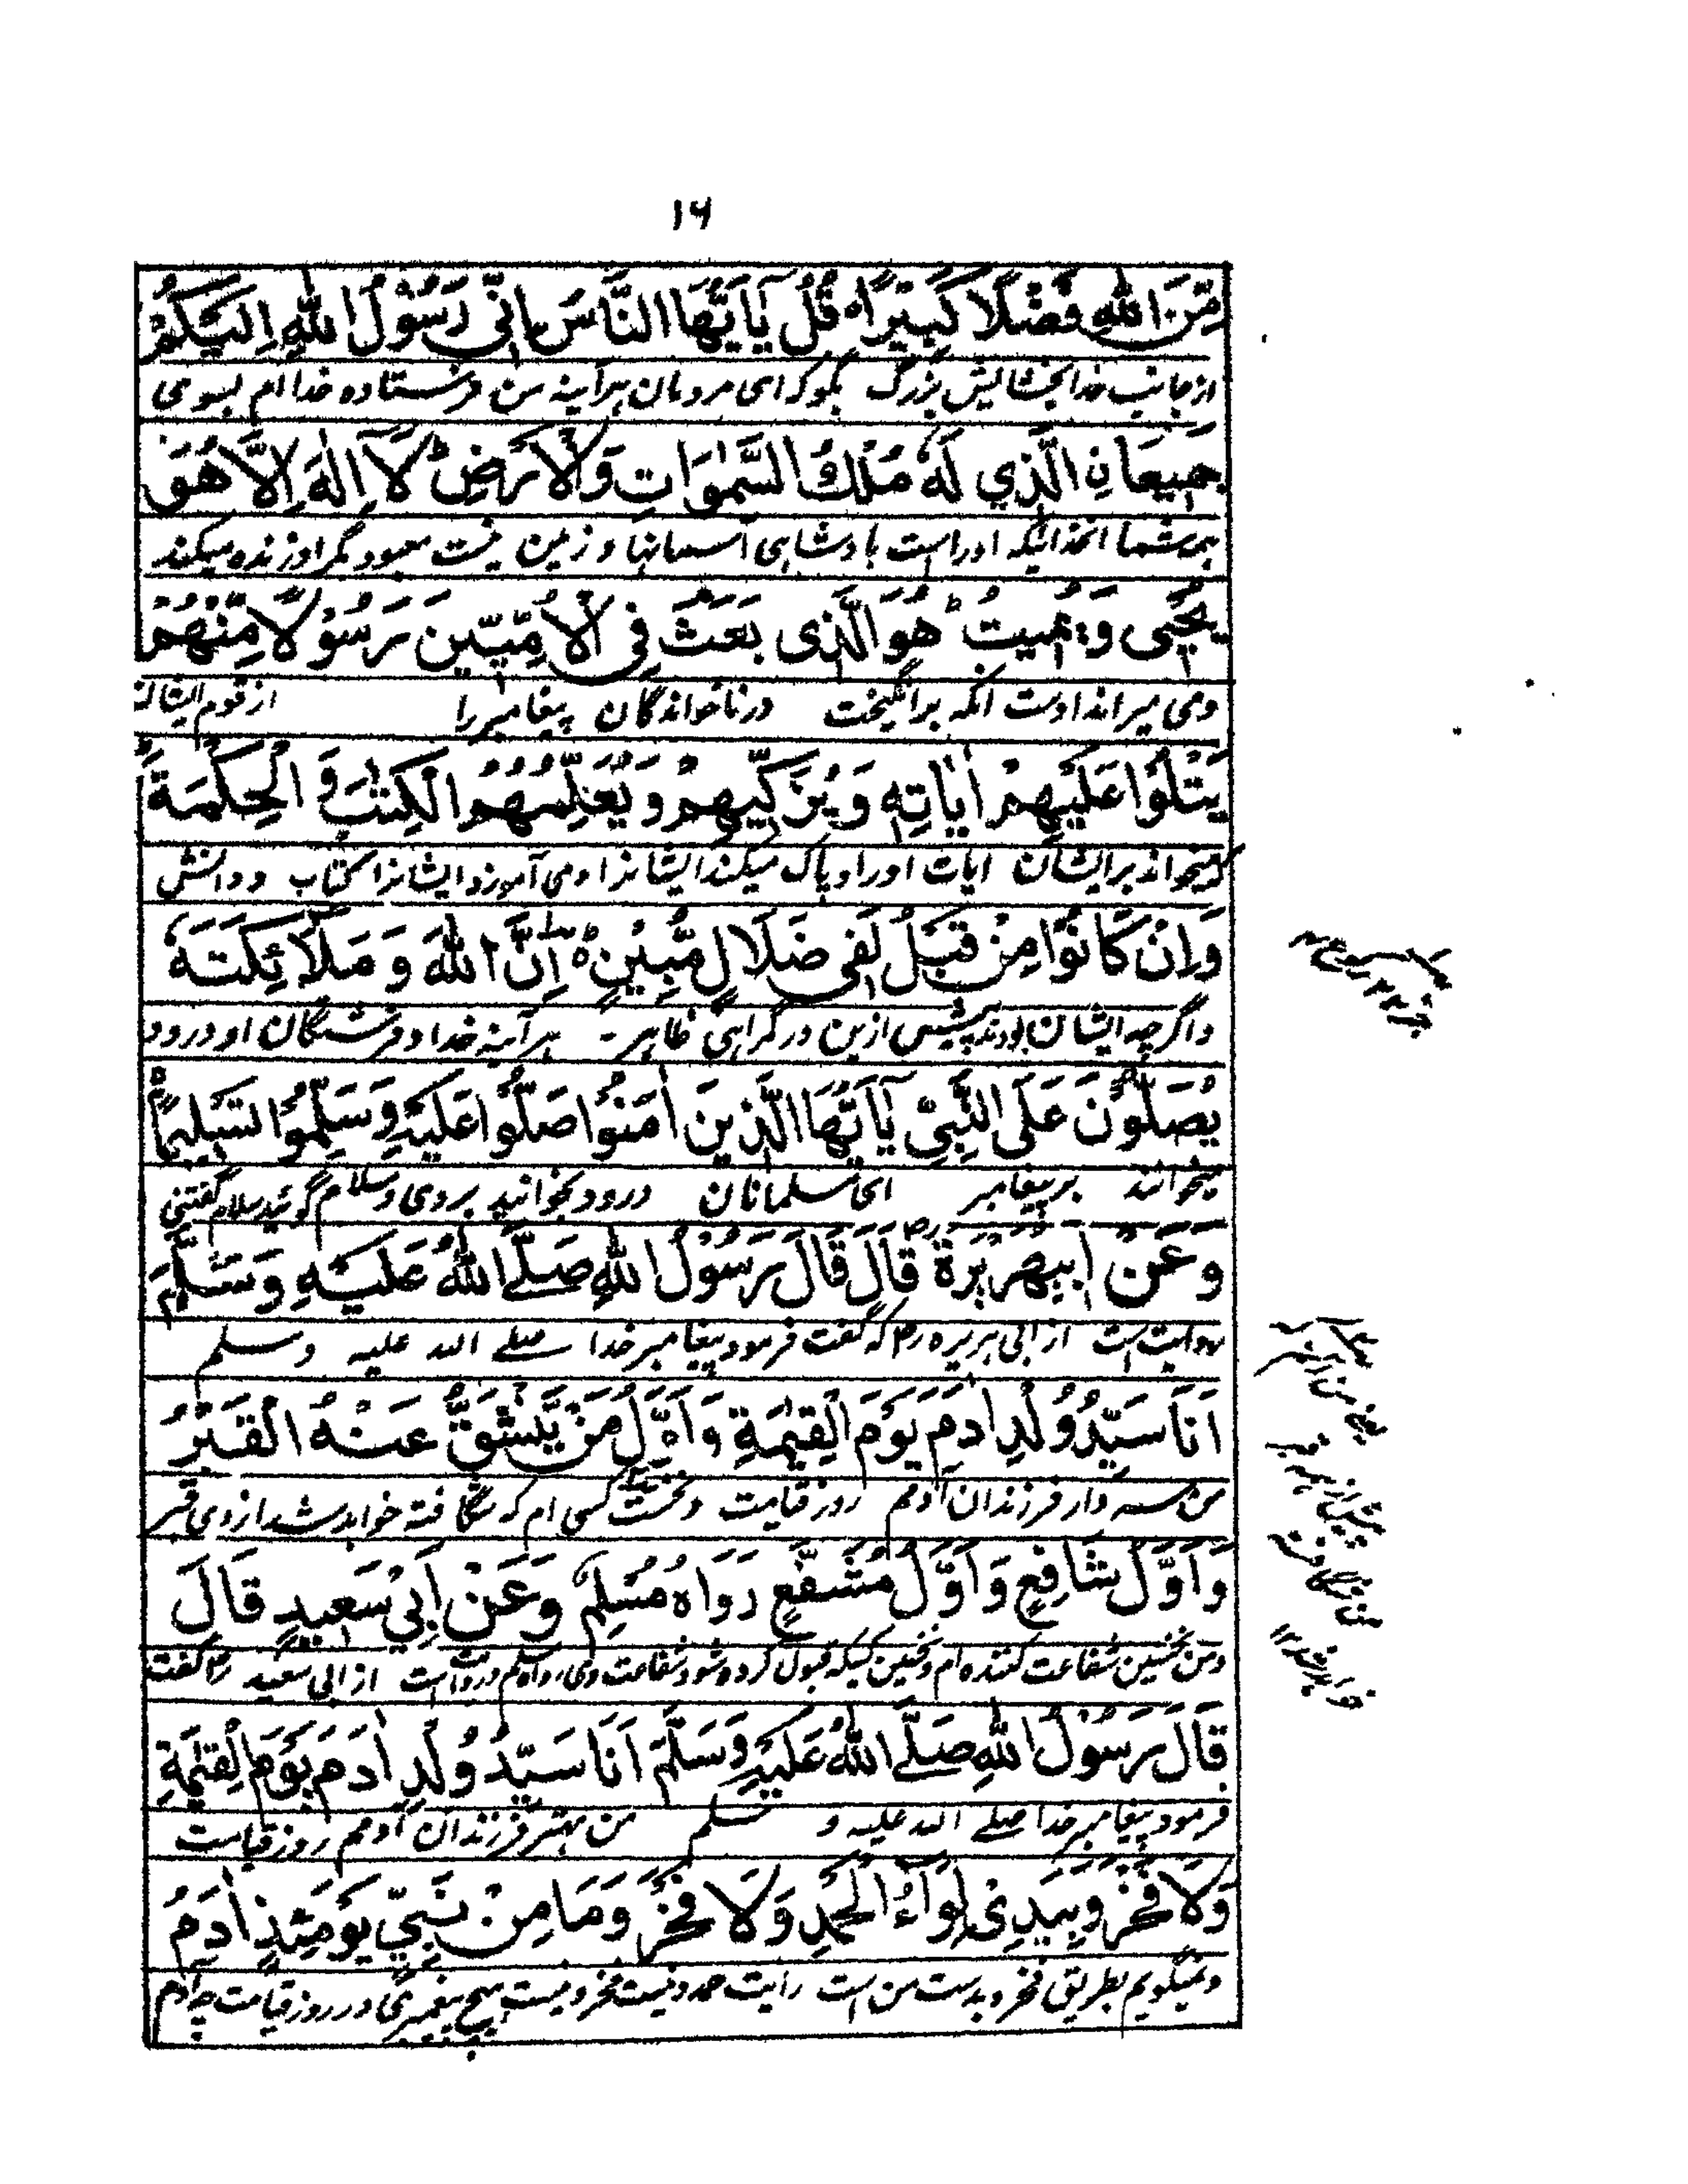 ۱۶
مِّنَ اللّٰهِ فَضْلًا كَبِيْرًا ه قُلْ يَآ اَيُّهَا النَّاسُ اِنِّي رَسُوْلُ اللّٰهِ اِلَيْكُمْ
از جانب خدا بخشایش بزرگ بگو که ای مردمان هرآینه من فرستاده خدا ام بسوی
جَمِيعَا نِ الَّذِي لَهٗ مُلْكُ السَّمٰوَاتِ وَالْاَرْضِ ط لَآ اِلٰهَ اِلَّا هُوَ
همه شما آنخدائیکه اوراست بادشاهی آسمانها و زمین نیست معبود مگر او زنده میکند
يُحْيِى وَيُمِيتُ ط هُوَ الَّذِى بَعَثَ فِى الْاُمِّيّٖنَ رَسُوْلًا مِّنْهُمْ
ومی میراند اوست آنکه برانگیخت در ناخواندگان پیغامبر را از قوم ایشان
يَتْلُوْا عَلَيْهِمْ اٰيَاتِهٖ وَيُزَكِّيهِمْ وَيُعَلِّمُهُمُ الْكِتٰبَ وَ الْحِكْمَةَ
که میخواند بر ایشان ایات اورا و پاک میکند ایشانرا و می آموزد ایشانرا کتاب و دانش
وَاِنْ كَانُوْا مِنْ قَبْلُ لَفِى ضَلَالٍ مُّبِيْنٍ ه اِنَّ اللّٰهَ وَ مَلَآئِكَتَهٗ
و اگرچه ایشان بودند پیش ازین در گمراهی ظاهر - هرآینه خدا و فرشتگان او درود
يُصَلُّوْنَ عَلَى النَّبِىِّ يَآ اَيُّهَا الَّذِينَ اٰمَنُوْا صَلُّوْا عَلَيْهِ وَسَلِّمُوْا تَسْلِيمًا
میخوانند بر پیغامبر ای مسلمانان درود بخوانید بر وی و سلام گوئید سلام گفتنی
وَعَنْ اَبِيهُرَيْرَةَ رض قَالَ قَالَ رَسُوْلُ اللّٰهِ صَلَّے اللّٰهُ عَلَيْهِ وَسَلَّمَ
روایت است از ابی هریره رض که گفت فرمود پیغامبر خدا صلے الله علیه وسلم
اَنَا سَيِّدُ وُلْدِ اٰدَمَ يَوْمَ الْقِيٰمَةِ وَاَوَّلُ مَنْ يَّنْشَقُّ عَنْهُ الْقَبْرُ
من سردار فرزندان آدمم روز قیامت و نخست کسی ام که شگافته خواهد شد از وی قبر
وَاَوَّلُ شَافِعٍ وَاَوَّلُ مُشَفَّعٍ رَوَاهُ مُسْلِمٌ وَعَنْ اَبِيْ سَعِيدٍ قَالَ
و من نخستین شفاعت کننده ام و نخستین کسیکه قبول کرده شود شفاعت وی رواه مسلم و روایت است از ابی سعید رض گفت
قَالَ رَسُوْلُ اللّٰهِ صَلَّے اللّٰهُ عَلَيْهِ وَسَلَّمَ اَنَا سَيِّدُ وُلْدِ اٰدَمَ يَوْمَ الْقِيٰمَةِ
فرمود پیغامبر خدا صلے الله علیه و سلم من مهتر فرزندان آدمم روز قیامت
وَلَا فَخْرَ وَبِيَدِىْ لِوَآءُ الْحَمْدِ وَلَا فَخْرَ وَمَا مِنْ نَبِيٍّ يَوْمَئِذٍ اٰدَمُ
و نمیگویم بطریق فخر و بدست من است رایت حمد و نیست فخر و نیست هیچ پیغمبری در روز قیامت چه آدم